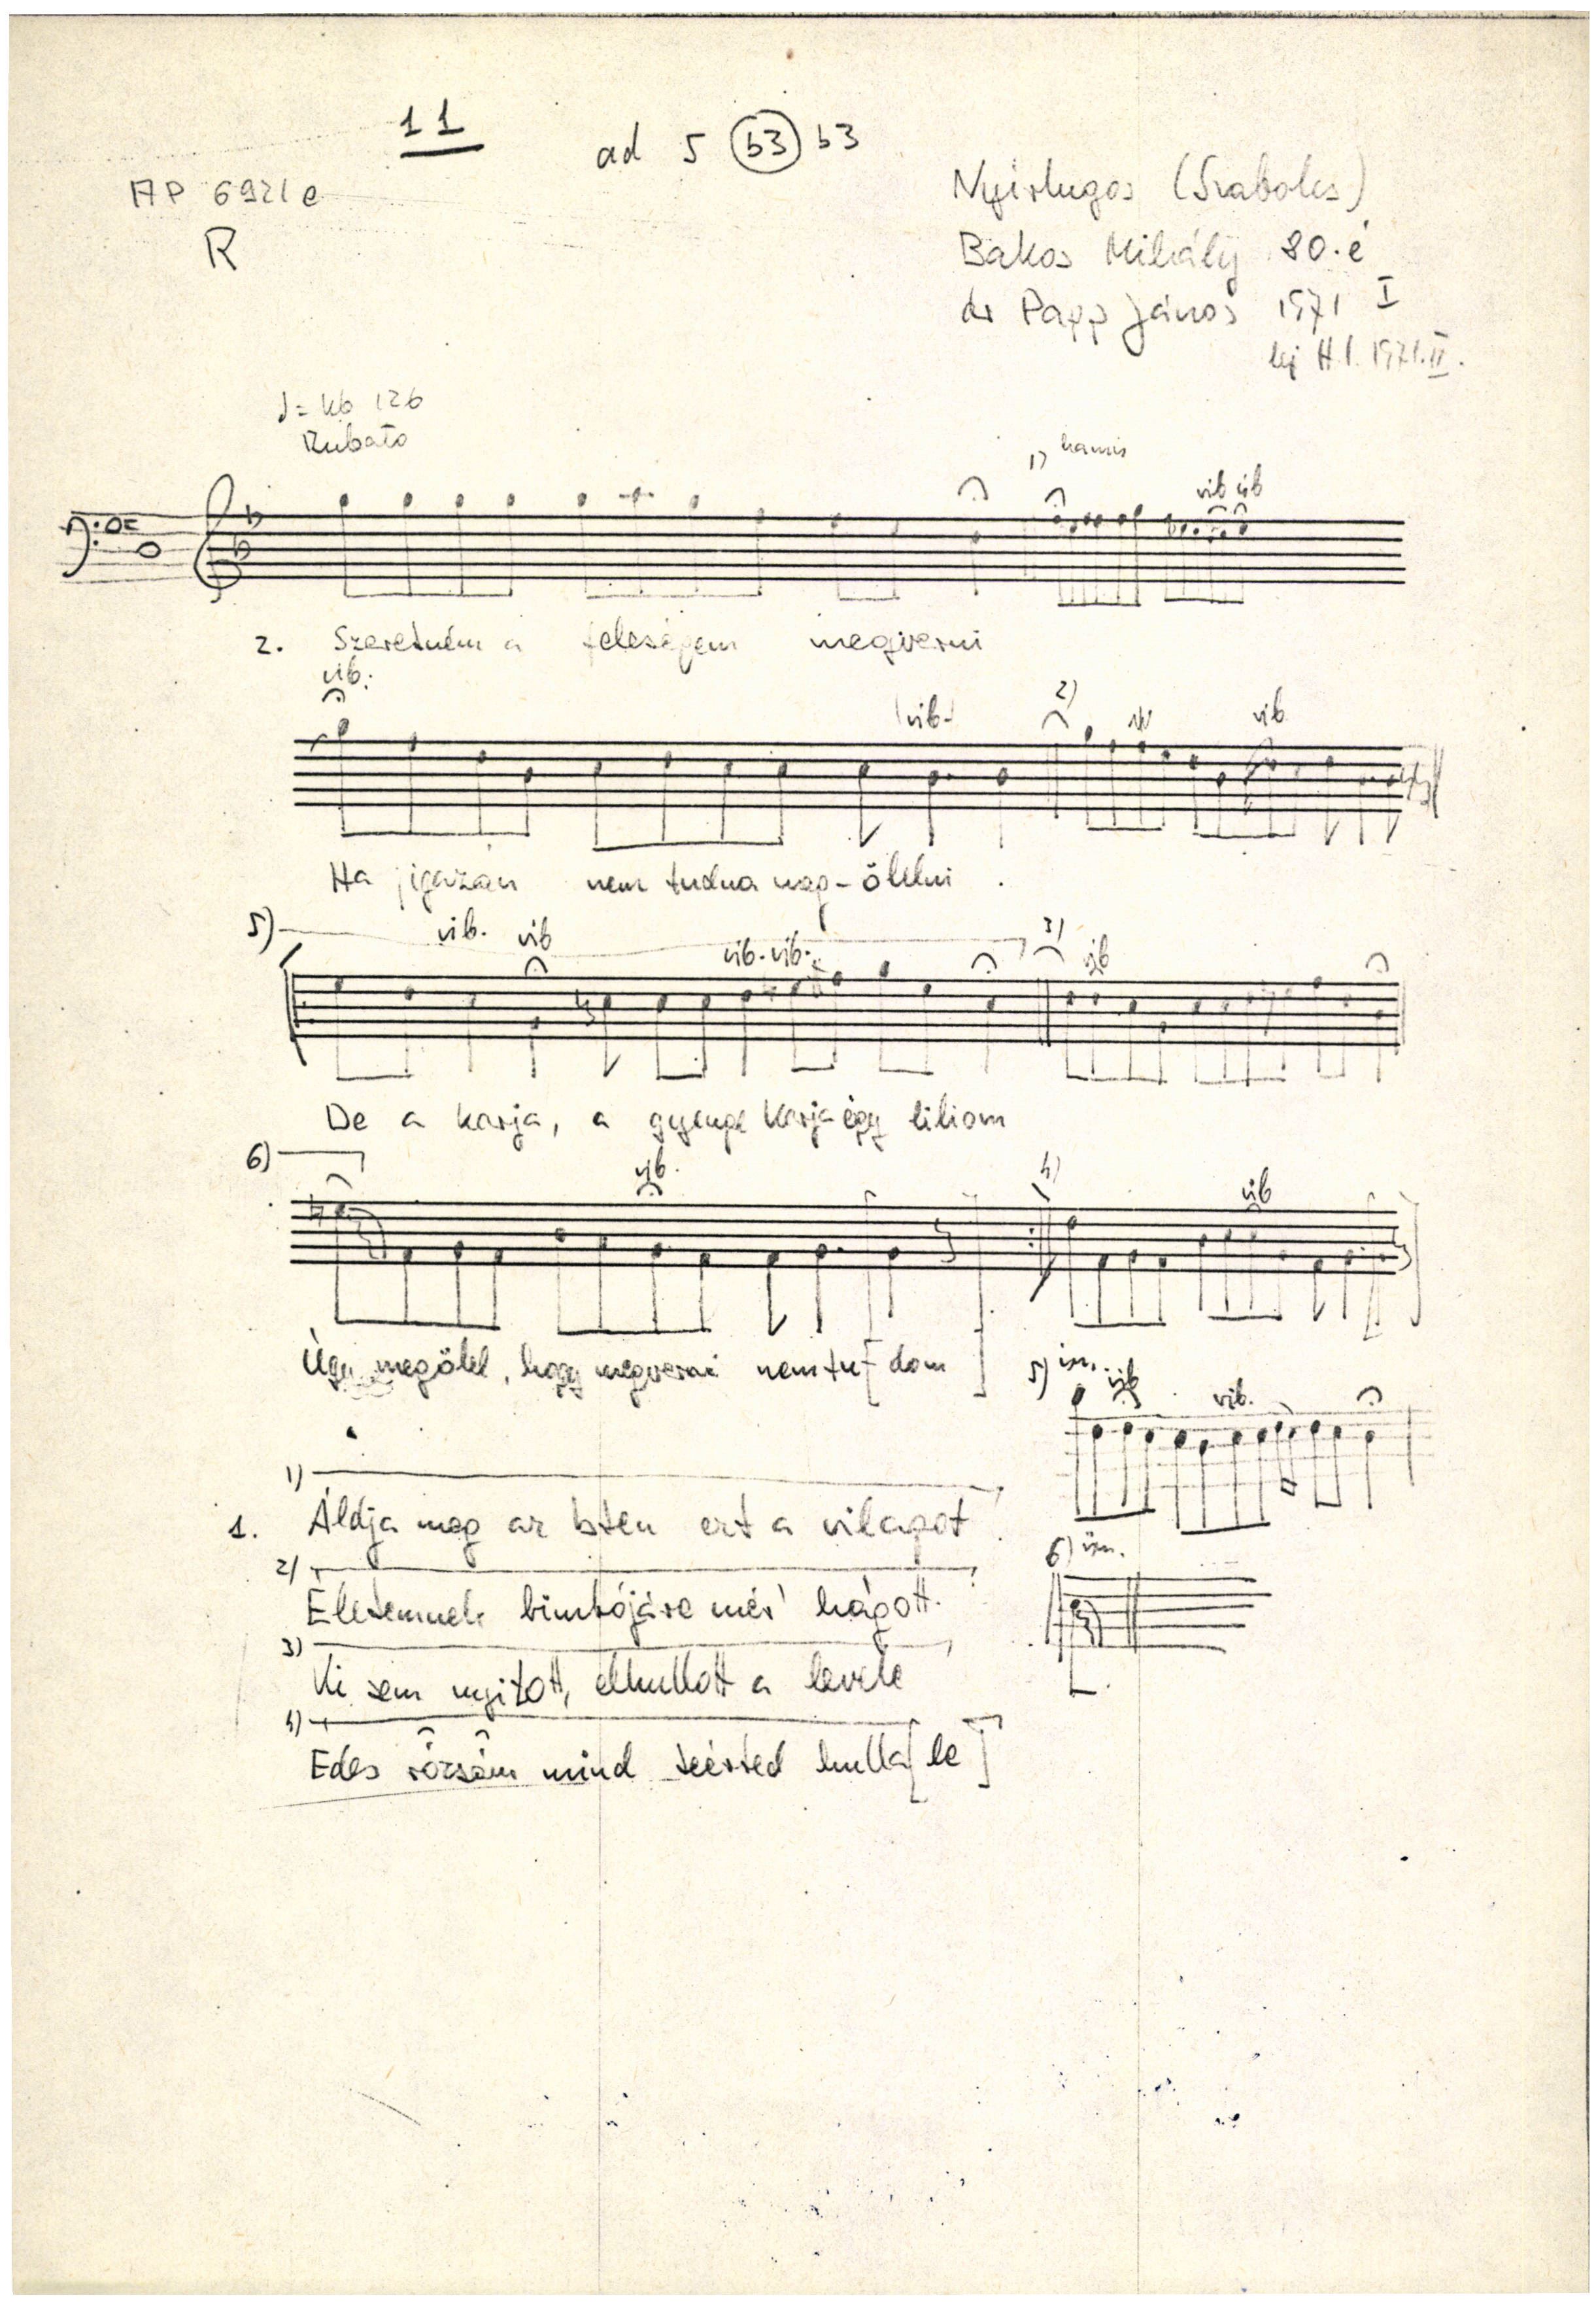 11
ad 5 b3 b3
AP 6921e
R
Nyírlugos (Szabolcs)
Bakos Mihály 80.é
dr Papp János 1971 I
lej H.I. 1971.II.
♩= kb 126
Rubato
1) hamis
vib vib
2. Szeretném a feleségem megverni
vib.
vib.
2)
vib
vib
Ha jigazán nem tudna meg-ölelni.
5)
vib. vib
vib. vib.
3)
vib
De a karja, a gyenge karja égy liliom
6)
vib.
4)
vib
Úgy megölel, hogy megverni nem tu[dom]
5) ism.
vib
vib.
1)
1. Áldja meg az Isten ezt a világot
6) ism.
2)
Életemnek bimbójára mér' hágott.
3)
Ki sem nyitott, elhullott a levele
4)
Édes rózsám mind teérted hulla[le]